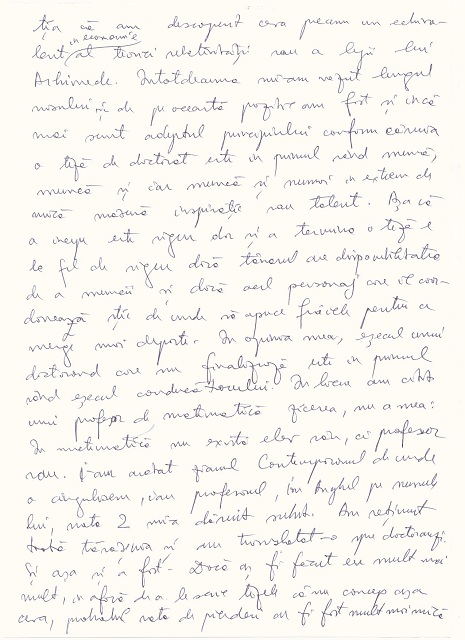 ția că am descoperit ceva precum un echiva-
lent în economie al teoriei relativității sau a legii lui
Arhimede. Întotdeauna mi-am văzut lungul
nasului și de pe această poziție am fost și încă
mai sunt adeptul principiului conform căruia
o teză de doctorat este în primul rând muncă,
muncă și iar muncă și numai în extrem de
mică măsură inspirație sau talent. Așa că
a începe este sigur dar și a termina o teză e
la fel de sigur dacă tânărul are disponibilitatea
de a munci și dacă acel personaj care îl coor-
donează știe de unde să apuce firele pentru a
merge mai departe. În opinia mea, eșecul unui
doctorand care nu finalizează este în primul
rând eșecul conducătorului. În liceu am citit
unui profesor de matematică zicerea, nu a mea:
În matematică nu există elev rău, ci profesor
rău. I-am arătat ziarul Contemporanul de unde
o, iar profesorul, pe numele
lui, nota 2 mi-a dăruit subit. Am reținut
tărășenia și am translatat-o spre doctoranzi.
Și așa și a fost. Dacă aș fi făcut eu mult mai
mult, în afară de a le tezele că nu concep așa
ceva, probabil rata de pierderi ar fi fost mult mai mică